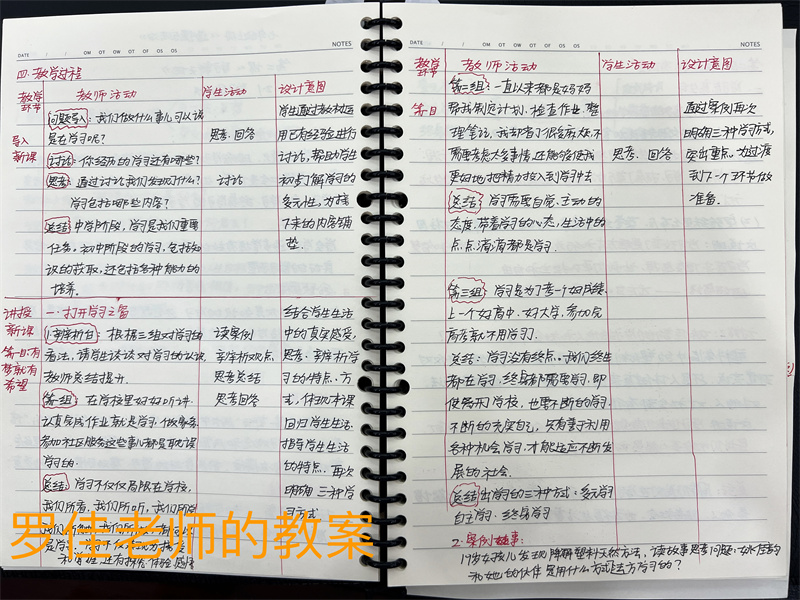 DATE / / OM OT OW OT OF OS OS NOTES
四. 教学过程
教学环节 教师活动 学生活动 设计意图
导入新课
问题导入：我们做什么事儿可以说
是在学习呢？
思考. 回答
讨论：你经历的学习还有哪些？
思考：通过讨论我们发现了什么？
讨论
学习包括哪些内容？
总结 中学阶段，学习是我们重要
任务。初中阶段的学习，包括知
识的获取，还包括各种能力的
培养。
用已有经验进行
讨论，帮助学生
初步了解学习的
多元性，为接
下来的内容铺
垫.
讲授新课
一. 打开学习之窗
根据三组对学习的
看法，请学生谈谈对学习的认识
教师总结提升.
读案例
辛辩析观点
思考总结
思考回答
第一组：在学校里好好听讲.
认真完成作业就是学习. 做家务
参加社区服务这些事儿都是耽误
学习的.
总结：学习不仅仅局限在学校，
我们所看，我们所听，我们所做
结合学生生活
中的真实感受，
习的特点、方
回归学生生活
指导学生生活
的特点. 再次
明确三种学
习方式
罗佳老师的教案
DATE / / OM OT OW OT OF OS OS NOTES
教学环节 教师活动 学生活动 设计意图
第二组：一直以来都是妈妈
帮我制定计划. 检查作业. 整
理笔记，我却省了很多麻烦. 不
需要考虑太多事情，还能够使我
更好地把精力投入到学习中去
思考. 回答
总结 学习需要自觉、主动的
态度，带着学习的心态，生活中的
点点滴滴都是学习.
通过案例再次
明确三种学习方式，
突出重点. 为过渡
到下一个环节做
准备.
第三组：学习是为了考一个好成绩.
上一个好高中、好大学，参加完
高考就不用学习了.
总结：学习没有终点。我们终生
都在学习. 终身都需要学习，即
使离开学校，也要不断的学习.
不断的充实自己，只有善于利用
各种机会学习. 才能适应不断发
展的社会.
总结出学习的三种方式：多元学习
自主学习. 终身学习
2. 案例故事：
17岁女孩儿发现降解塑料天然方法，读故事思考问题：
和她的伙伴是用什么方式去学习的？